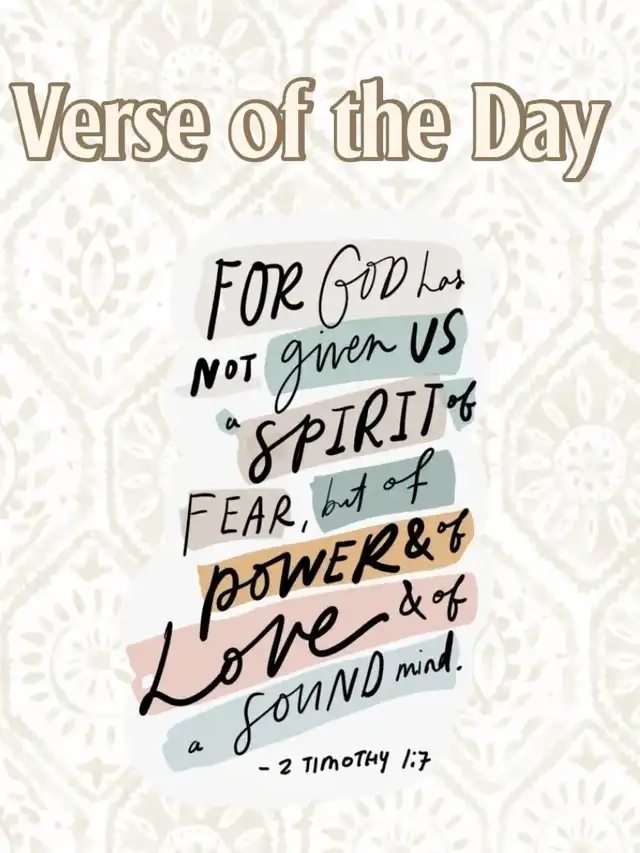 Verse of the Day
FOR GOD has
NOT given US
a SPIRIT of
FEAR, but of
POWER & of
Love & of
a SOUND mind.
- 2 TIMOTHY 1:7